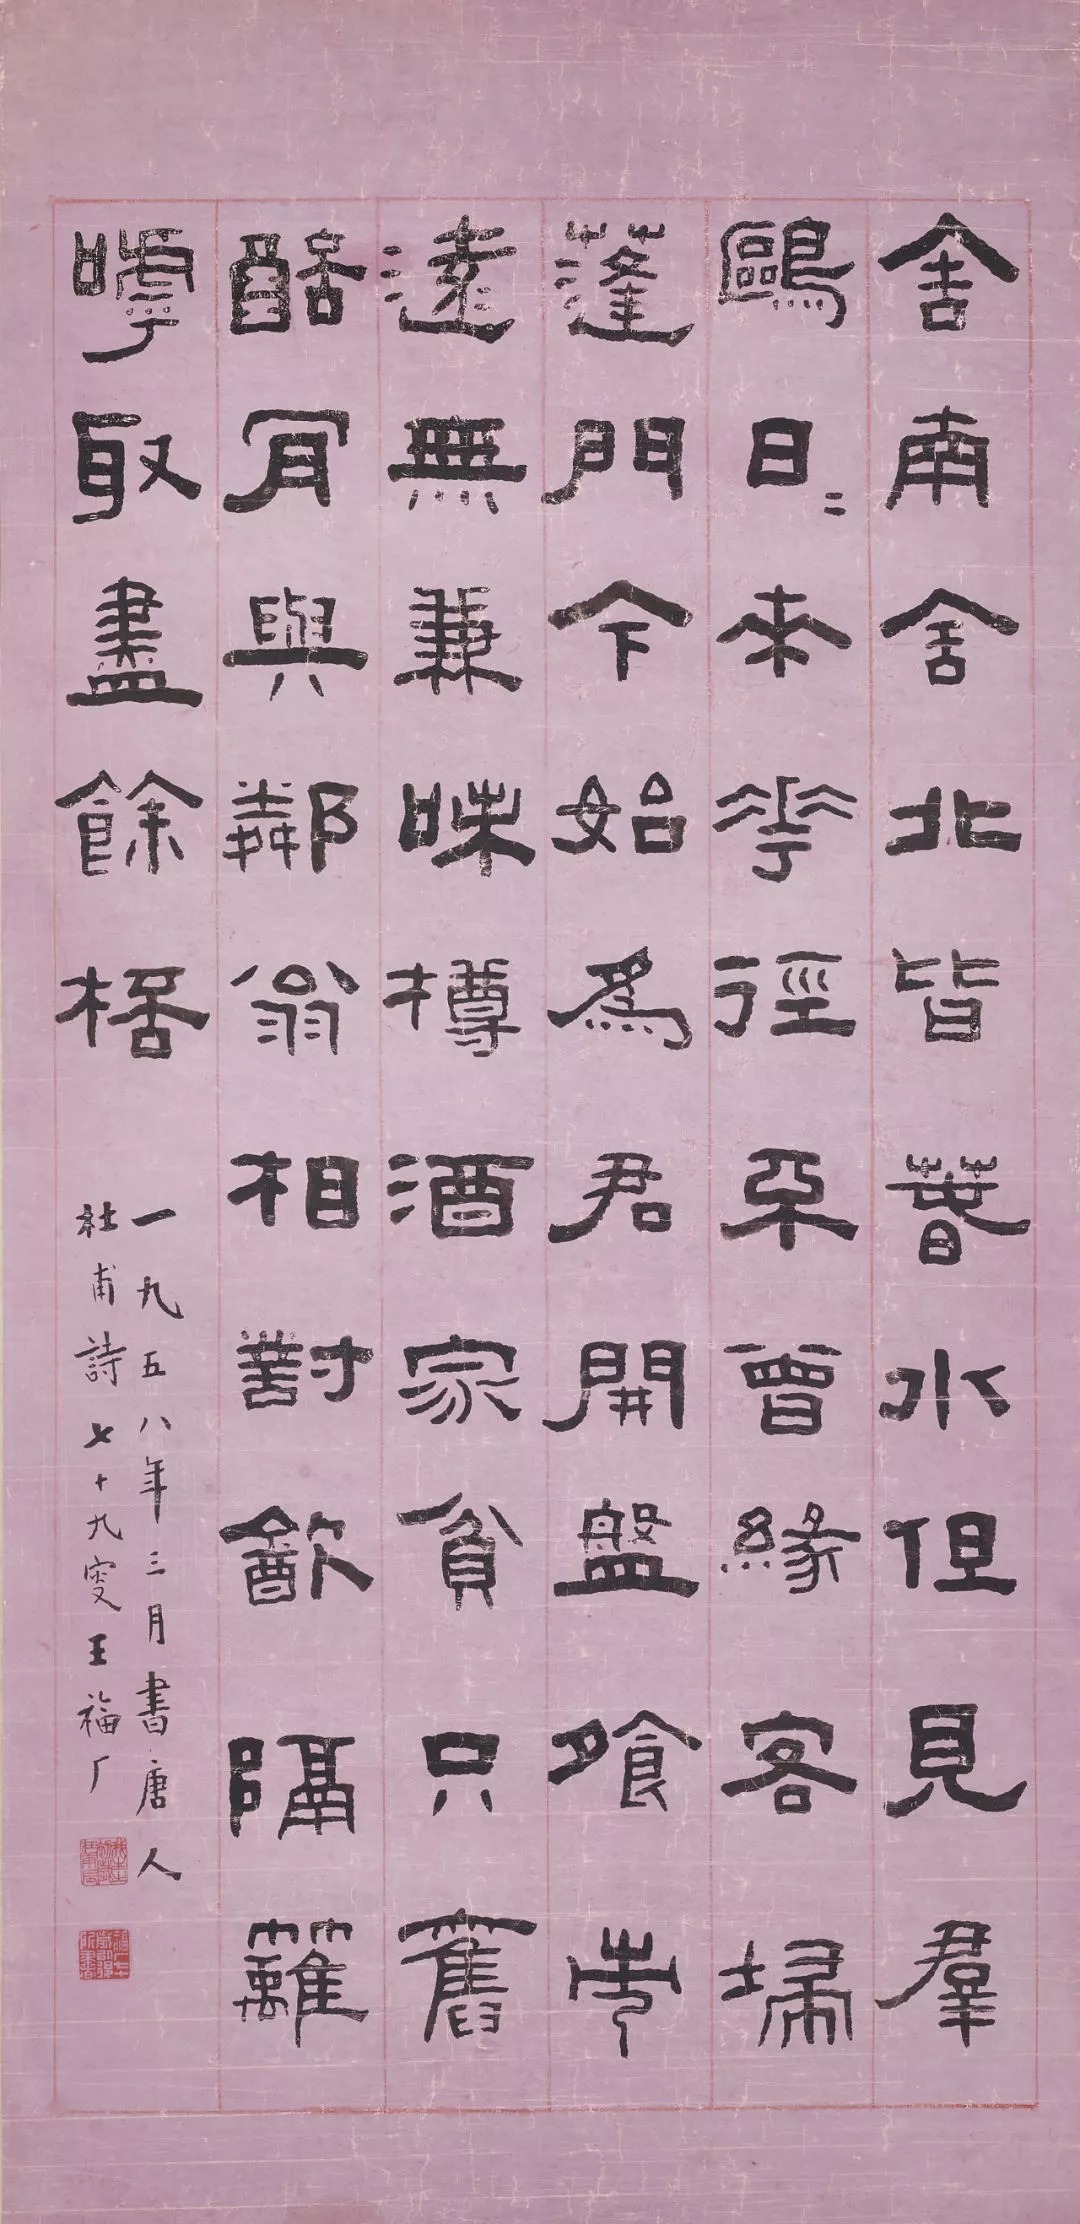 舍南舍北皆春水但見羣
鷗日〻來花徑不曾緣客埽
蓬門今始為君開盤飧市
遠無兼味樽酒家貧只舊
醅肎與鄰翁相對㱃隔籬
嘑取盡餘桮
一九五八年三月書唐人
杜甫詩七十九叟王福厂